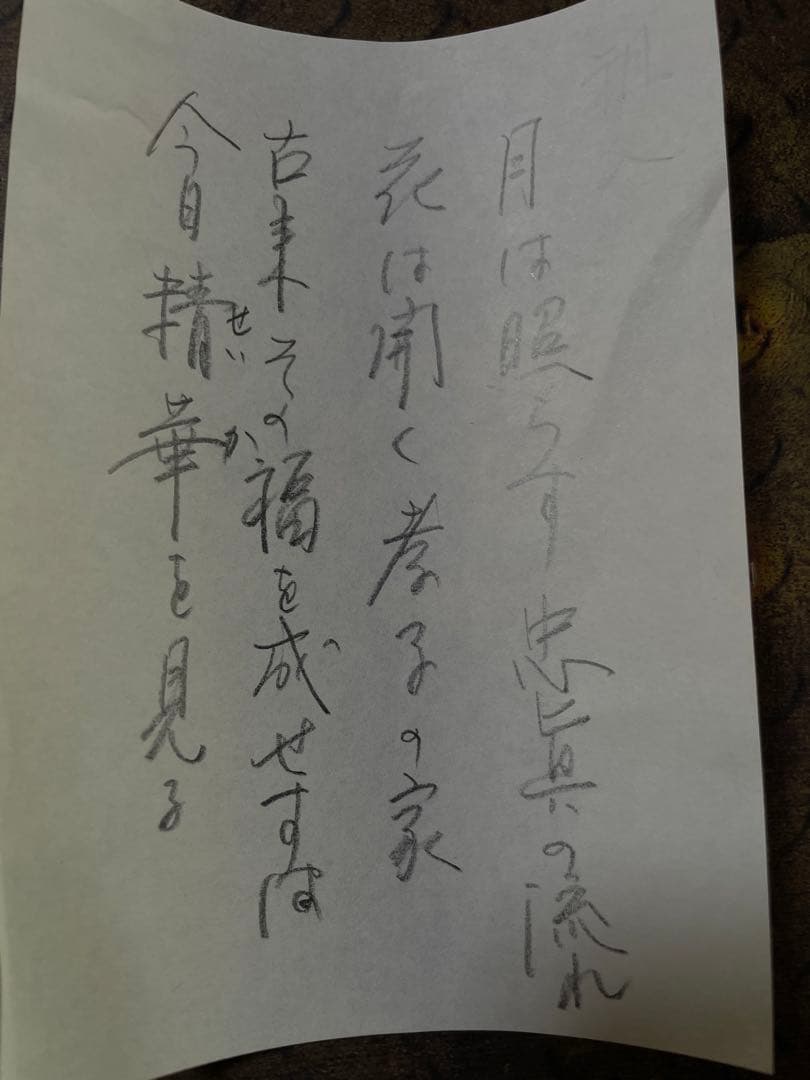 月は照らす忠真の流れ
花は開く孝子の家
古来その福を成せすは
今日精華を見る
せいか